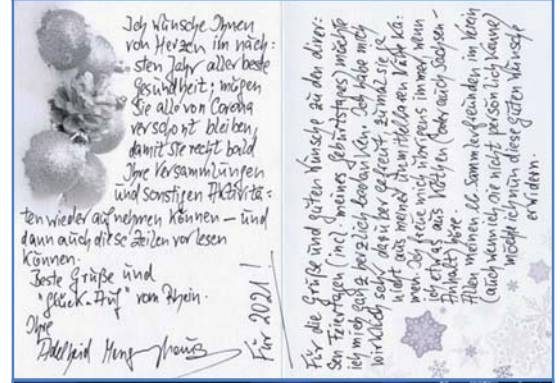 Ich wünsche Ihnen
von Herzen im näch=
sten Jahr aller beste
Gesundheit; mögen
Sie alle von Corona
verschont bleiben,
damit Sie recht bald
Ihre Versammlungen
und sonstigen Aktivitä=
ten wieder aufnehmen können – und
dann auch diese Zeilen vorlesen
können.
Beste Grüße und
"Glück-Auf" vom Rhein.
Ihre
Adelheid
Für 2021!
Für die Grüße und guten Wünsche zu den diver=
sen Feiertagen (incl. meines Geburtstages) möchte
ich mich ganz herzlich bedanken. Ich habe mich
wirklich sehr darüber gefreut, zumal sie ja
nicht aus meiner unmittelbaren Nähe ka=
men. Ich freue mich übrigens immer wenn
ich etwas aus Köthen (oder auch Sachsen-
Anhalt) höre.
Allen meinen Sammlerfreunden im Verein
(auch wenn ich sie nicht persönlich kenne)
möchte ich nun diese guten Wünsche
erwidern.